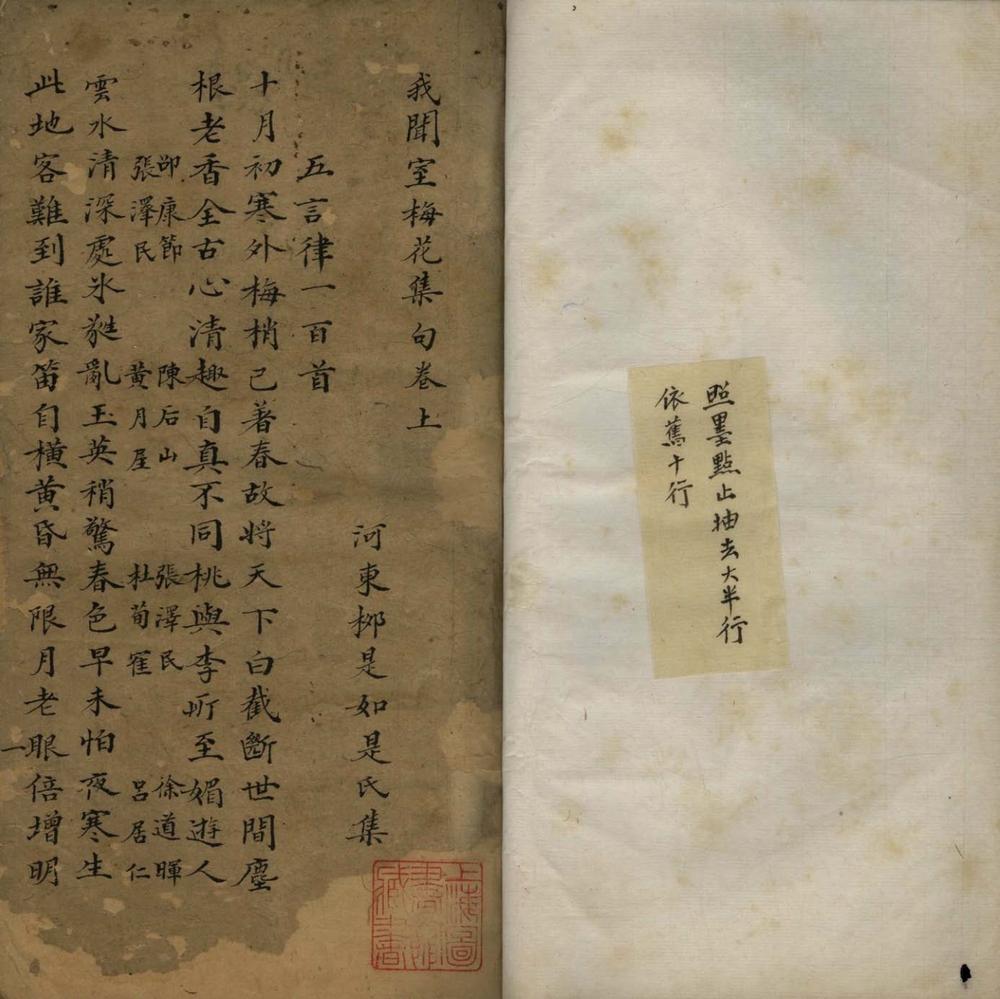 照墨點止抽去大半行
依舊十行
我聞室梅花集句卷上
河東桺是如是氏集
五言律一百首
十月初寒外梅梢已著春故將天下白截斷世間塵
根老香全古心清趣自真不同桃與李所至媚遊人
邵康節 陳后山 張澤民 徐道暉
張澤民 黃月屋 杜荀寉 呂居仁
雲水清深處氷甤亂玉英稍驚春色早未怕夜寒生
此地客難到誰家笛自橫黃昏無限月老眼倍增明
一
上海圖書館藏書